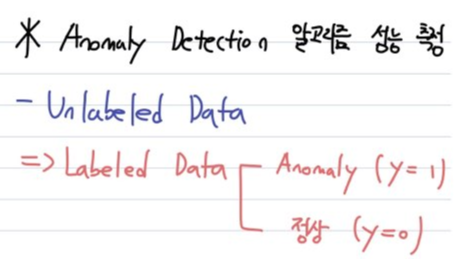 * Anomaly Detection 알고리즘 성능 측정
- Unlabeled Data
=> Labeled Data Anomaly (y=1)
정상 (y=0)